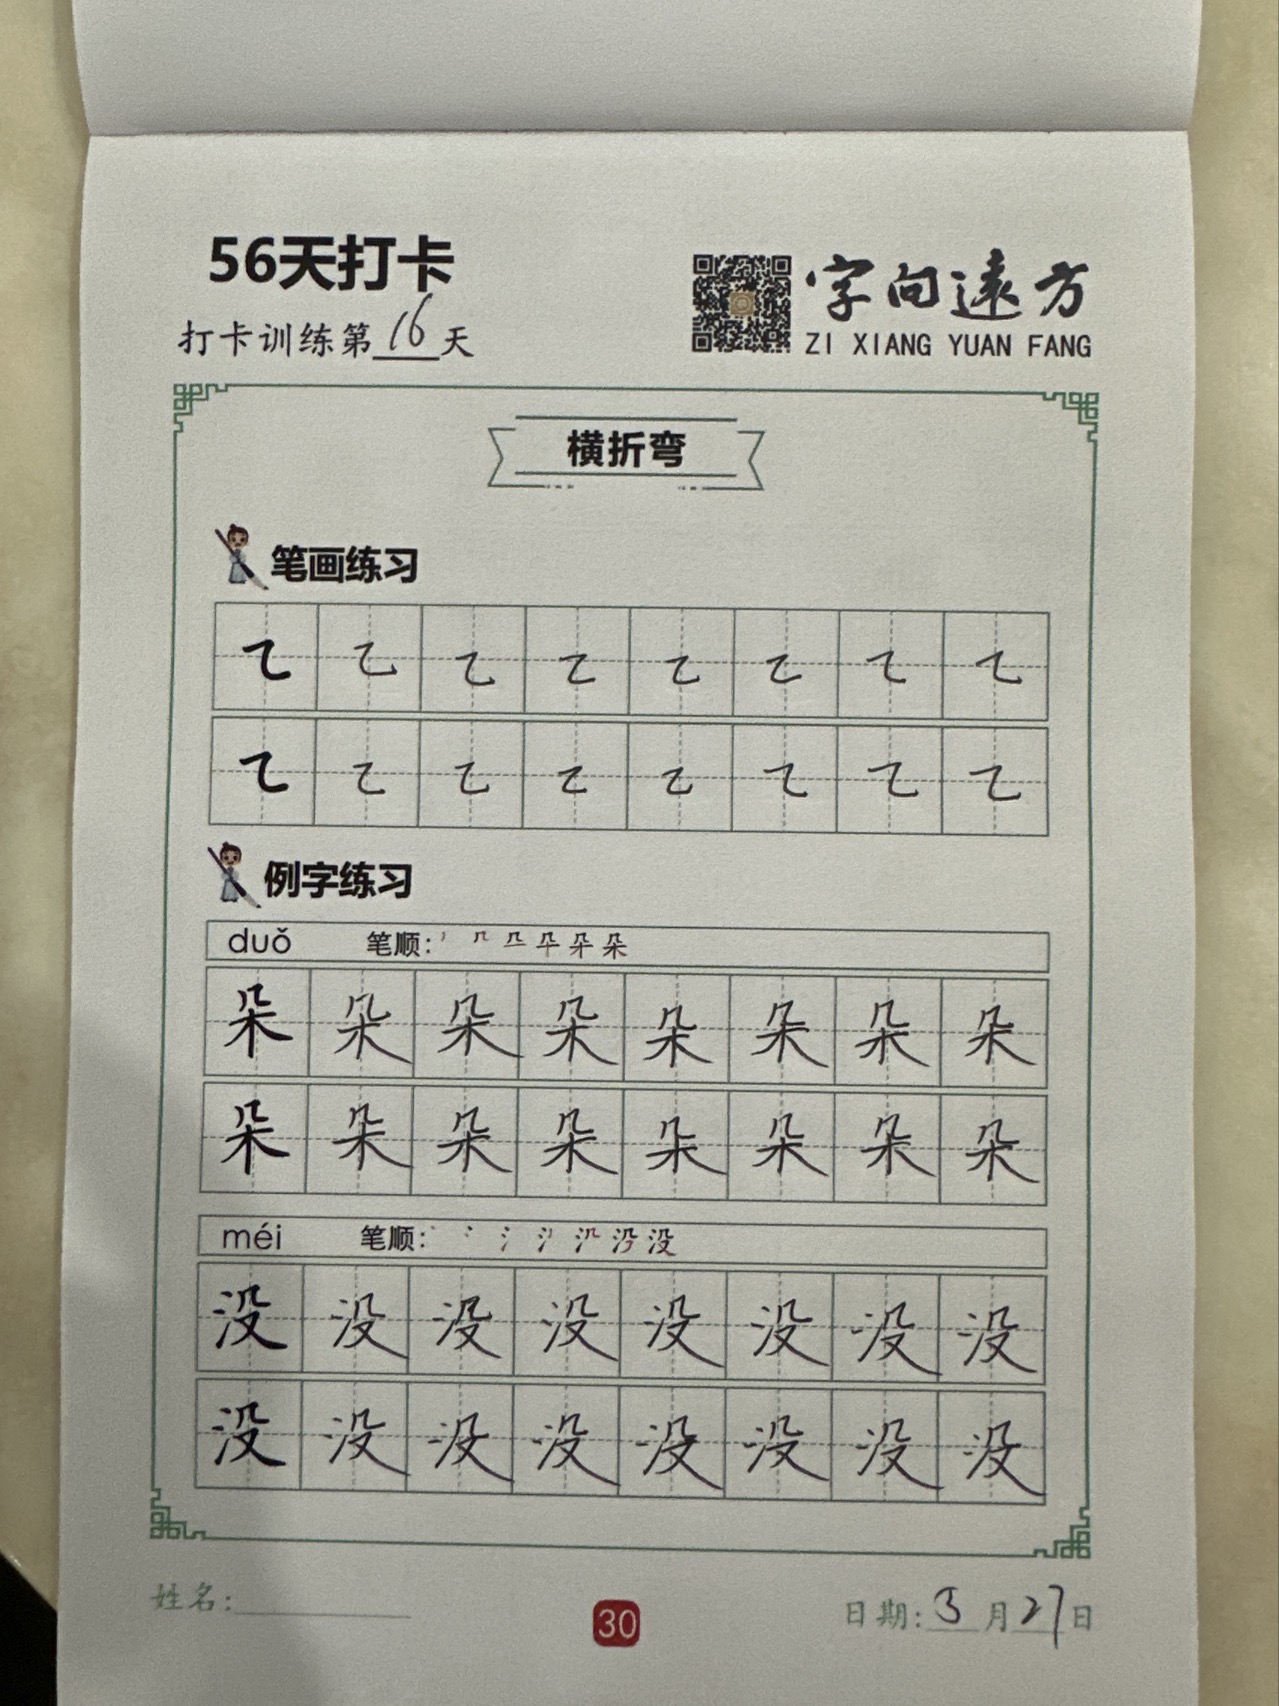 56天打卡
打卡训练第16天
字向遠方
ZI XIANG YUAN FANG
横折弯
笔画练习
㇍ ㇍ ㇍ ㇍ ㇍ ㇍ ㇍ ㇍
㇍ ㇍ ㇍ ㇍ ㇍ ㇍ ㇍ ㇍
例字练习
duǒ 笔顺:
朵 朵 朵 朵 朵 朵 朵 朵
朵 朵 朵 朵 朵 朵 朵 朵
méi 笔顺:
没 没 没 没 没 没 没 没
没 没 没 没 没 没 没 没
姓名:
30
日期:3月27日